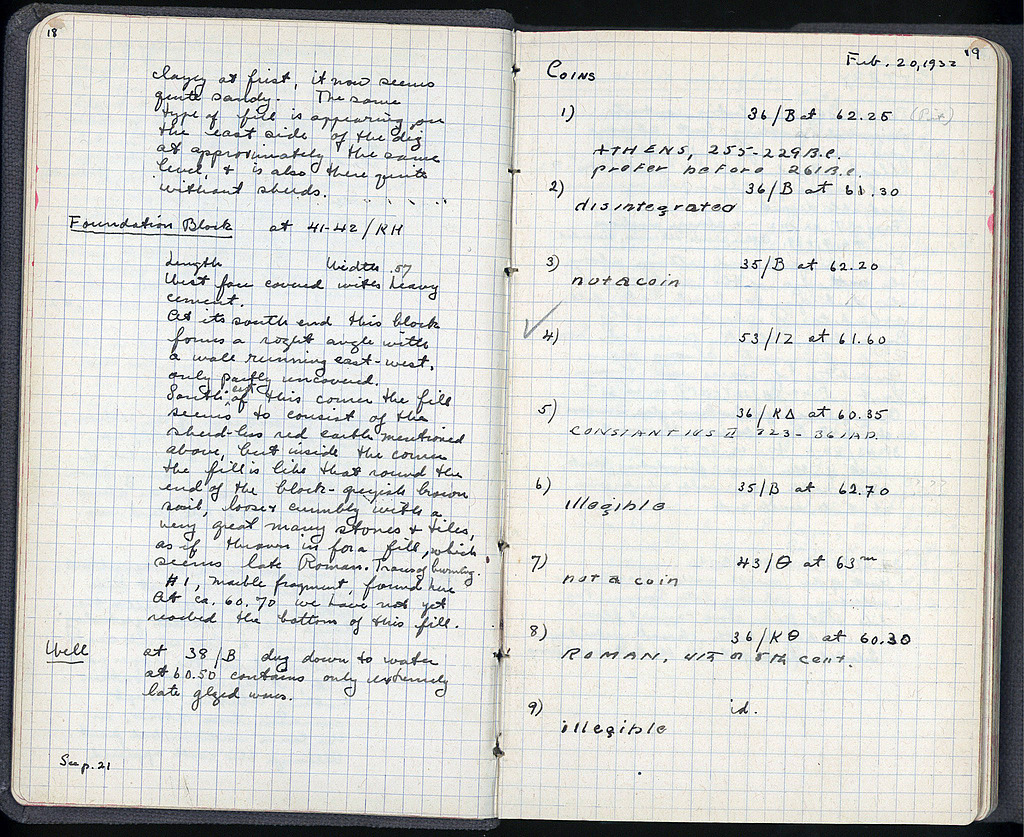 18
clayey at frist, it now seems
quite sandy. The same
type of fill is appearing on
the east side of the dig
at approximately the same
level, & is also there quite
without sherds.
Foundation Block at 41-42/KH
Length Width .57
West face covered with heavy
cement.
At its south end this block
forms a right angle with
a wall running east-west,
only partly uncovered.
South east of this corner the fill
seems to consist of the
sherd-less red earth mentioned
above, but inside the corner
the fill is like that round the
end of the block - greyish brown
soil, loose & crumbly with a
very great many stones & tiles,
as if thrown in for a fill, which
seems late Roman. Traces of burning.
#1, marble fragment, found here
At ca. 60.70 we have not yet
reached the bottom of this fill.
Well
at 38/B dug down to water
at 60.50 contains only extremely
late glazed wares.
See p. 21
19
Feb. 20, 1932
Coins
1) 36/B at 62.25 (Pit)
ATHENS, 255-229 B.C.
prefer before 261 B.C.
2) 36/B at 61.30
disintegrated
3) 35/B at 62.20
not a coin
4) 53/IZ at 61.60
5) 36/KΔ at 60.35
CONSTANTIUS II 323-361 AD.
6) 35/B at 62.70
illegible
7) 43/Θ at 63m
not a coin
8) 36/KΘ at 60.30
ROMAN, 4th or 5th cent.
9) id.
illegible